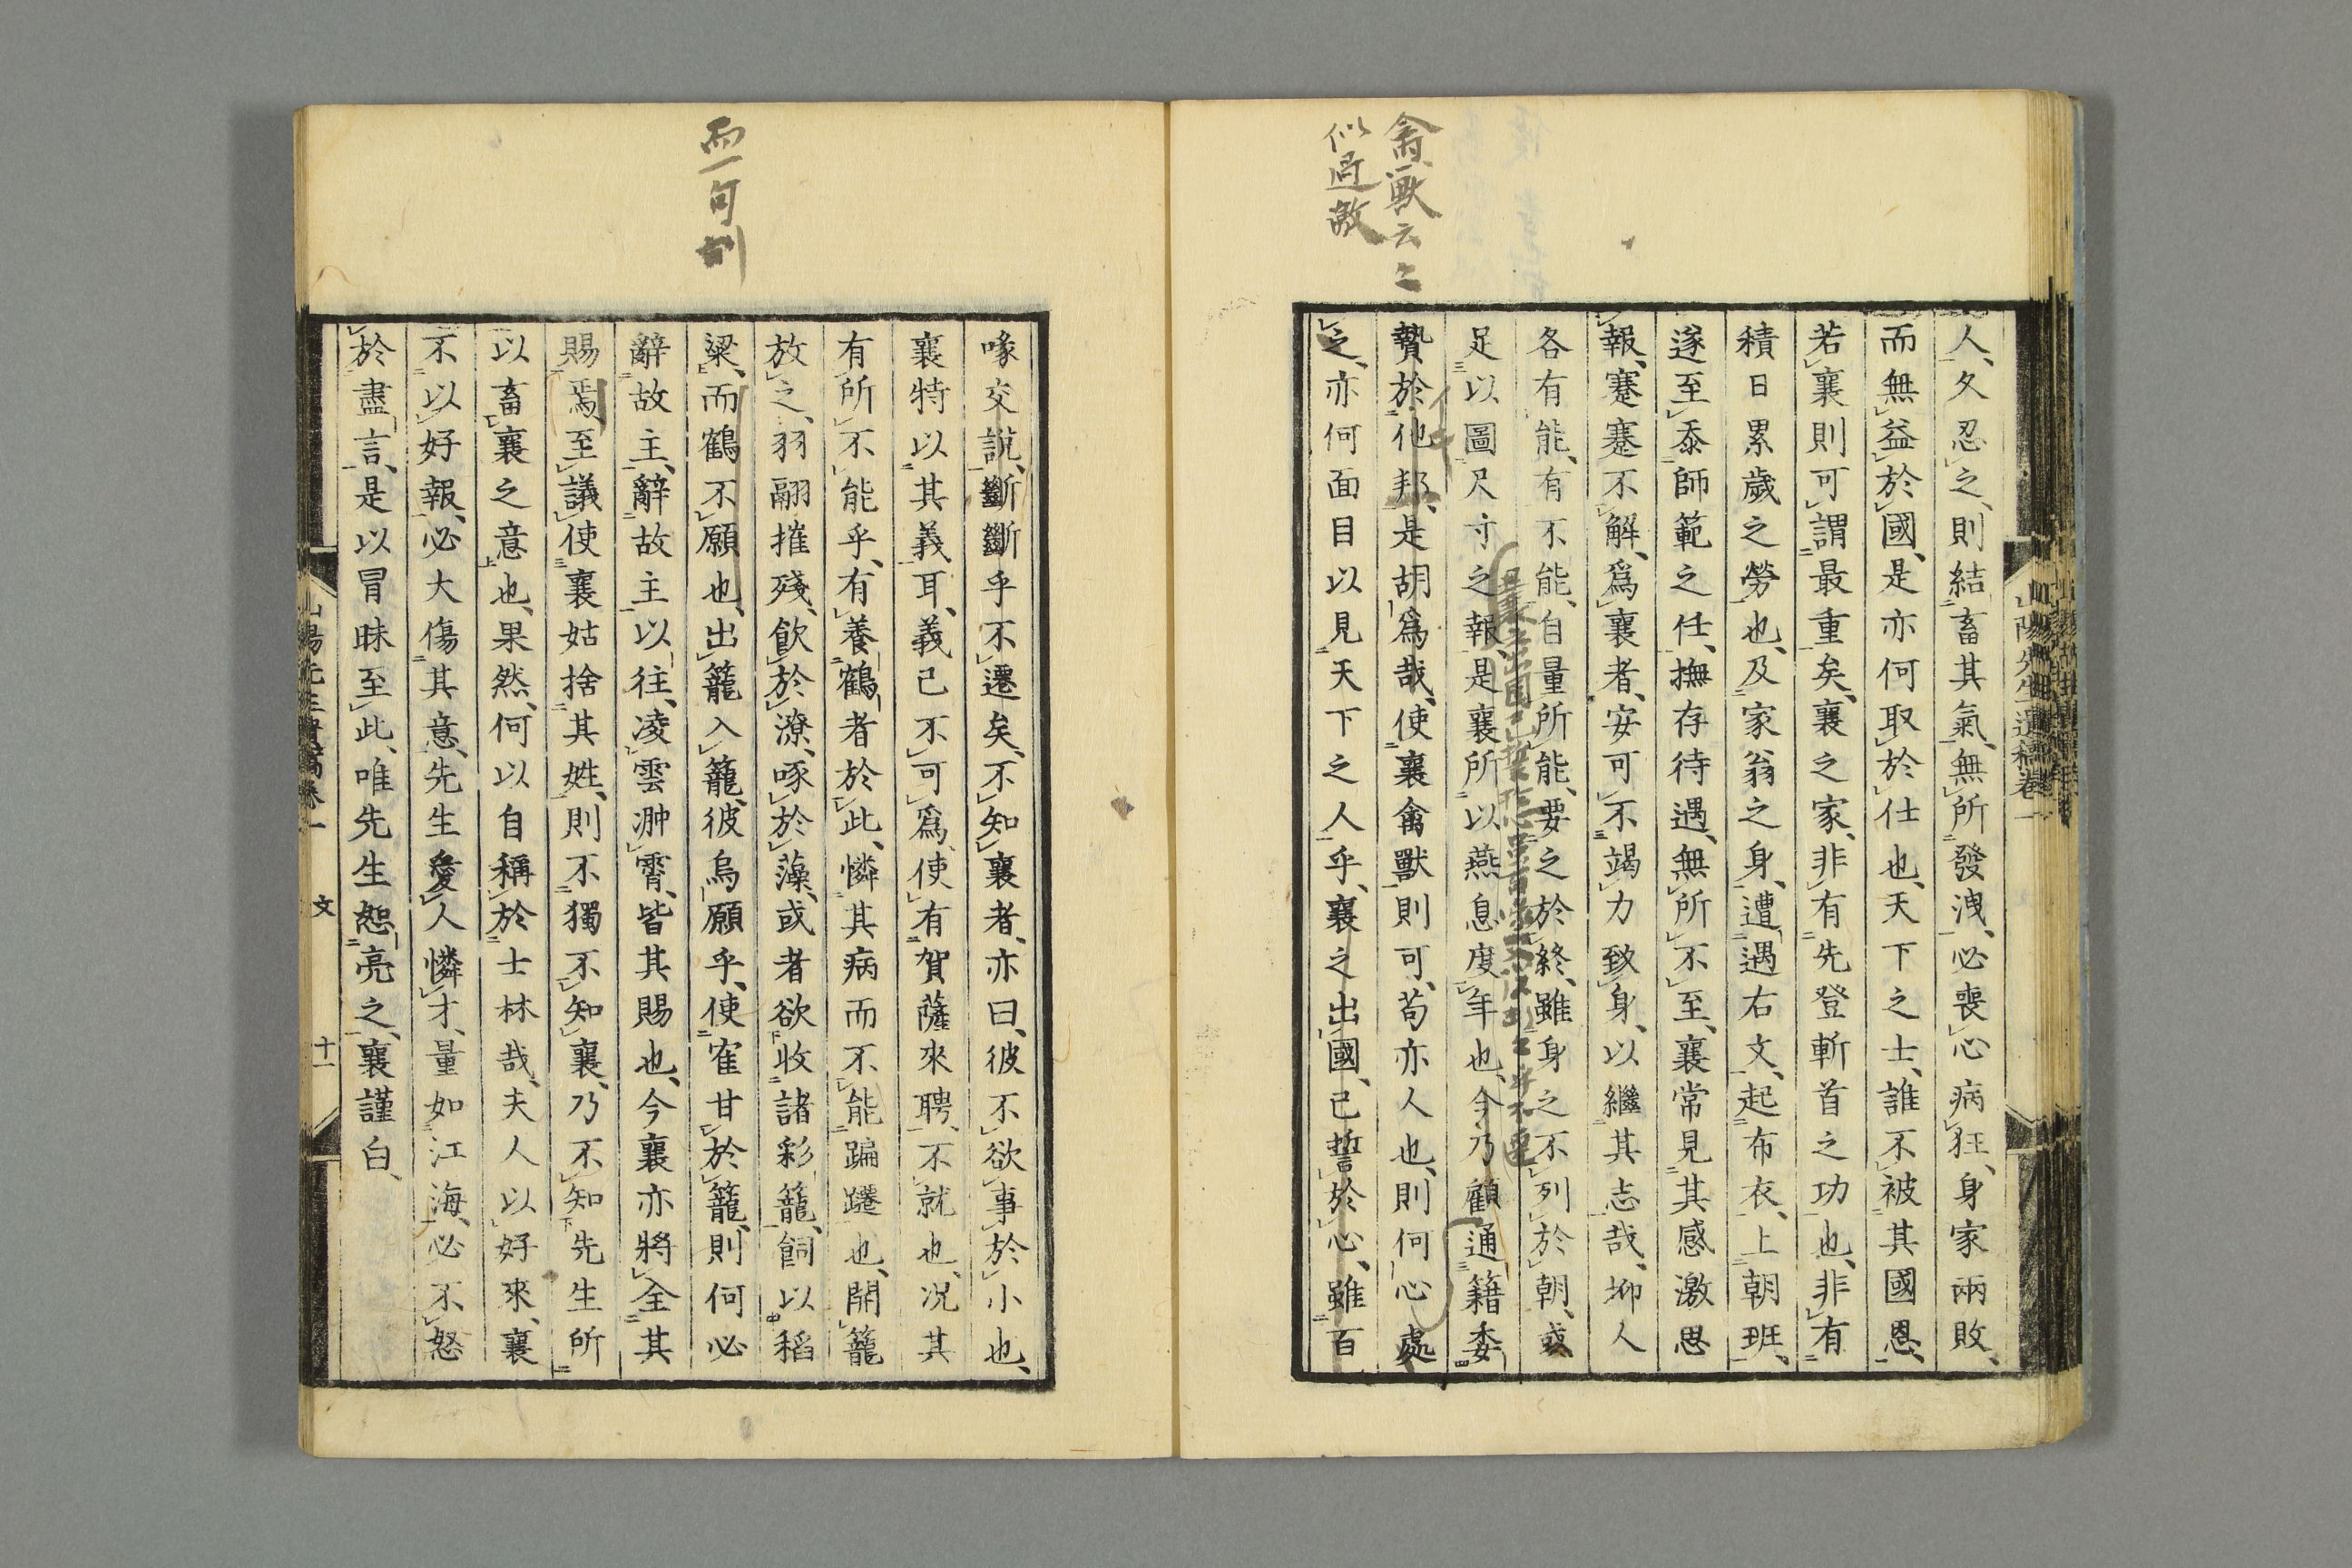 禽獸云々
似過激
人、久忍之、則結畜其氣、無所發洩、必喪心病狂、身家兩敗、
而無益於國、是亦何取於仕也、天下之士、誰不被其國恩、
若襄則可謂最重矣、襄之家、非有先登斬首之功也、非有
積日累歲之勞也、及家翁之身、遭遇右文、起布衣、上朝班、
遂至忝師範之任、撫存待遇、無所不至、襄常見其感激思
報、蹇蹇不解、爲襄者、安可不竭力致身、以繼其志哉、抑人
各有能、有不能、自量所能、要之於終、雖身之不列於朝、或
足以圖尺寸之報、是襄所以燕息度年也、今乃顧通籍委
贄於他邦、是胡爲哉、使襄禽獸則可、苟亦人也、則何心處
之、亦何面目以見天下之人乎、襄之出國、已誓於心、雖百
山陽先生遺稿卷一
而一句刪
喙交說、斷斷乎不遷矣、不知襄者、亦曰、彼不欲事於小也、
襄特以其義耳、義已不可爲、使有賀薩來聘、不就也、況其
有所不能乎、有養鶴者於此、憐其病而不能蹁躚也、開籠
放之、羽翮摧殘、飮於潦、啄於藻、或者欲收諸彩籠、飼以稻
粱、而鶴不願也、出籠入籠、彼烏願乎、使寉甘於籠、則何必
辭故主、辭故主以往、凌雲翀霄、皆其賜也、今襄亦將全其
賜焉、至議使襄姑捨其姓、則不獨不知襄、乃不知先生所
以畜襄之意也、果然、何以自稱於士林哉、夫人以好來、襄
不以好報、必大傷其意、先生愛人憐才、量如江海、必不怒
於盡言、是以冒昧至此、唯先生恕亮之、襄謹白、
山陽先生遺稿卷一 文 十一